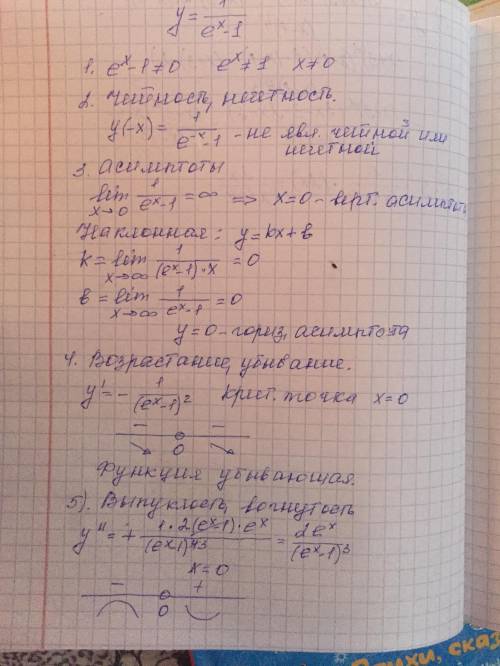 y = 1/(eˣ-1)
1. eˣ-1≠0 eˣ≠1 x≠0
2. Четность, нечетность.
y(-x) = 1/(e⁻ˣ-1) - не явл. четной или
нечетной
3. Асимптоты
lim x→0 1/(eˣ-1) = ∞ ⇒ x=0 - верт. асимптота
Наклонная: y=kx+b
k = lim x→∞ 1/((eˣ-1)·x) = 0
b = lim x→∞ 1/(eˣ-1) = 0
y=0 - гориз. асимптота
4. Возрастание, убывание.
y' = - 1/(eˣ-1)² Крит. точка x=0
- -
0
Функция убывающая.
5). Выпуклость, вогнутость
y'' = + 1·2(eˣ-1)·eˣ/(eˣ-1)⁴³ = 2eˣ/(eˣ-1)³
x=0
- +
0
стихи, сказ